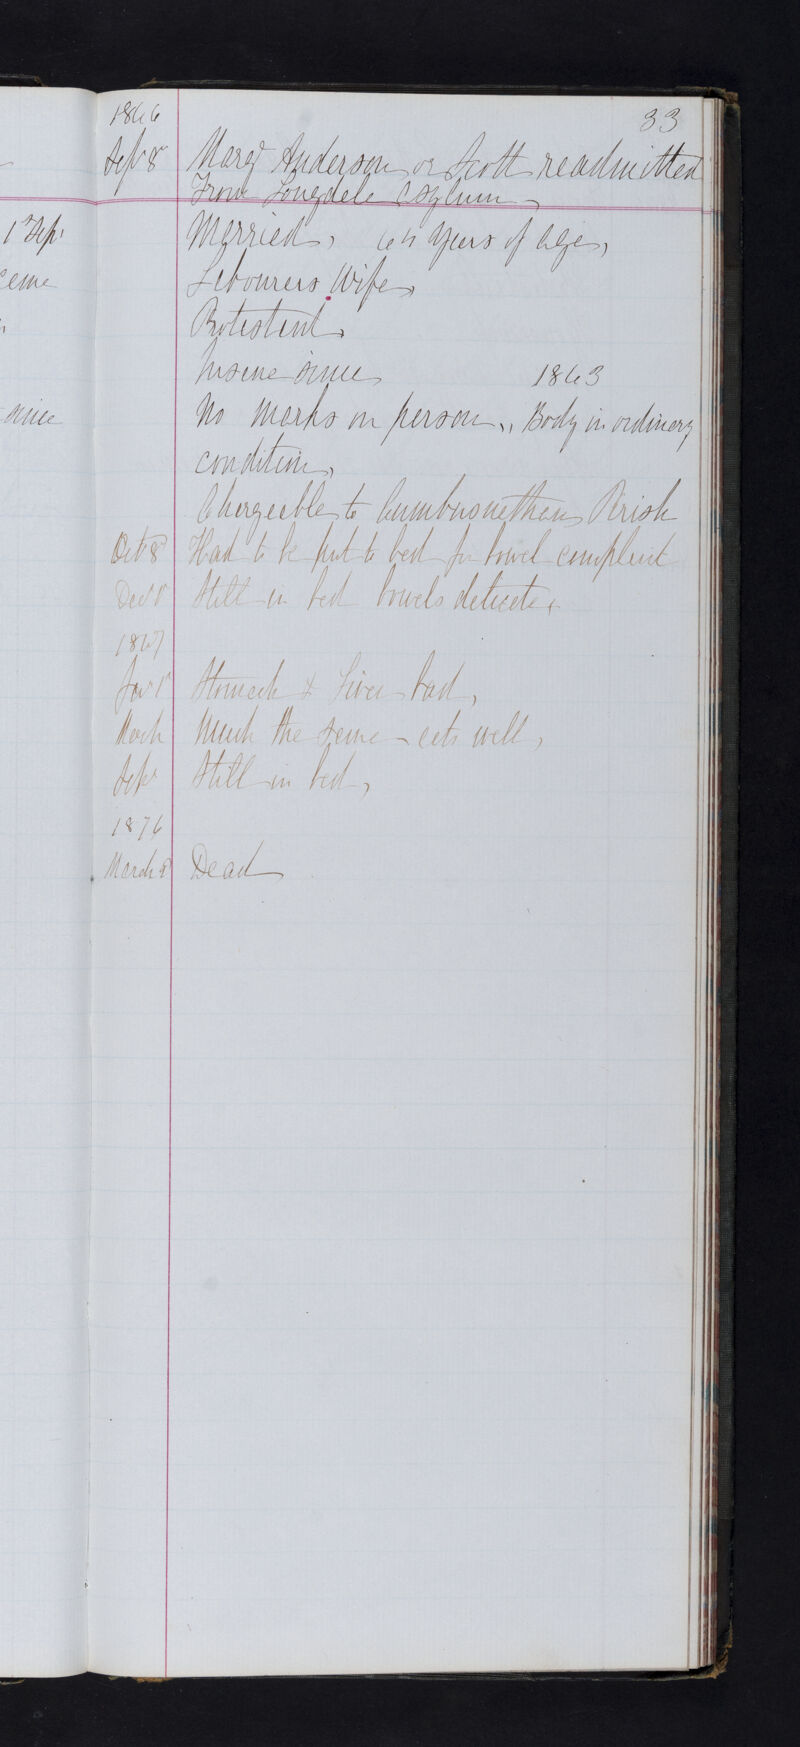 1866
33
Sepr 8 Margt Anderson or Scott readmitted
From Longdale Asylum
Married, 64 years of age,
Labourers Wife,
Protestant,
Insane since 1863
No marks on person,, Body in ordinary
condition,
Chargeable to Cumbusnethan Parish
Octr 8 Had to be put to bed for bowel complaint
Decr 1 Still in bed bowels delicate,
1867
Jany 1 Stomach & Liver bad,
March Much the same eats well,
Sepr Still in bed,
1876
March 8 Dead
1 Sepr
since